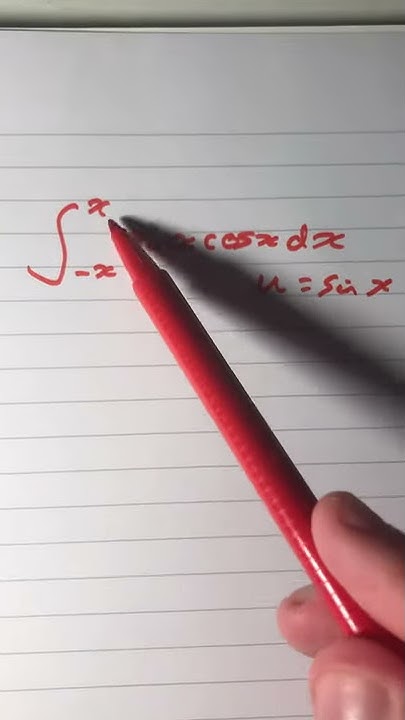 ∫_{-x}^{x} x cos x dx
u = sin x